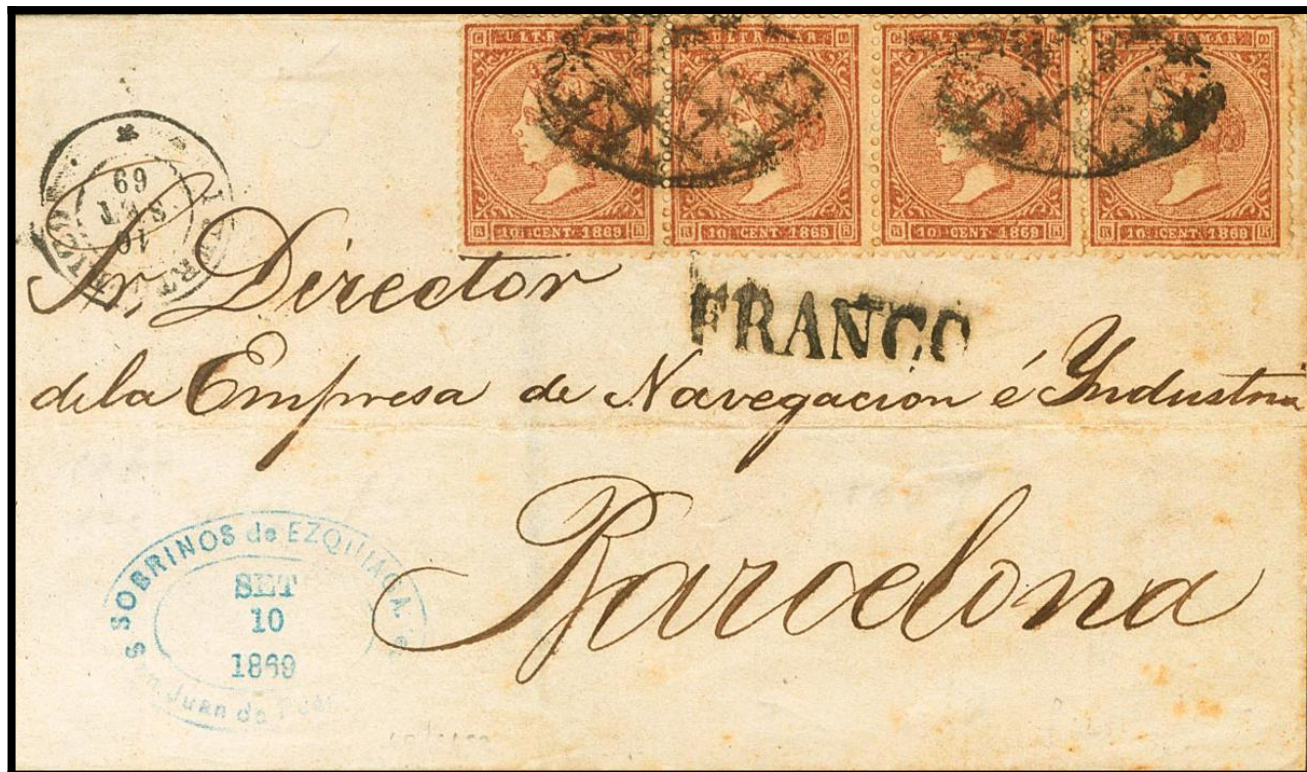 ULTRAMAR
10 CENT 1869
ULTRAMAR
10 CENT 1869
10 CENT 1869
10 CENT 1869
69
SET
10
FRANCO
Sr Director
dela Empresa de Navegacion é Yndustria
Barcelona
SOBRINOS de EZQUIAGA
SET
10
1869
San Juan de